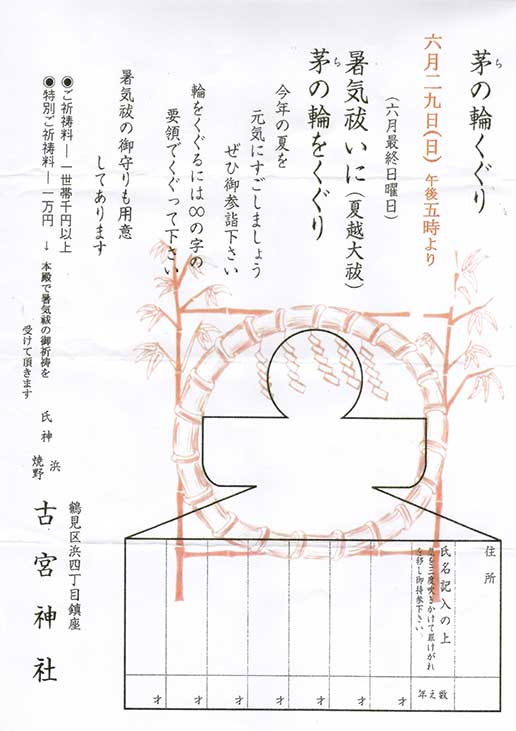 茅の輪くぐり
ち
六月二九日(日) 午後五時より
(六月最終日曜日)
暑気祓いに(夏越大祓)
茅の輪をくぐり
ち
今年の夏を
元気にすごしましょう
ぜひ御参詣下さい
輪をくぐるには∞の字の
要領でくぐって下さい
暑気祓の御守りも用意
してあります
●ご祈禱料―一世帯千円以上
●特別ご祈禱料―一万円 → 本殿で暑気祓の御祈禱を
受けて頂きます
鶴見区浜四丁目鎮座
氏神 浜
焼野
古宮神社
住所
氏名記入の上
息を三度吹きかけて罪けがれ
を移し御持参下さい
数え年
才
才
才
才
才
才
才